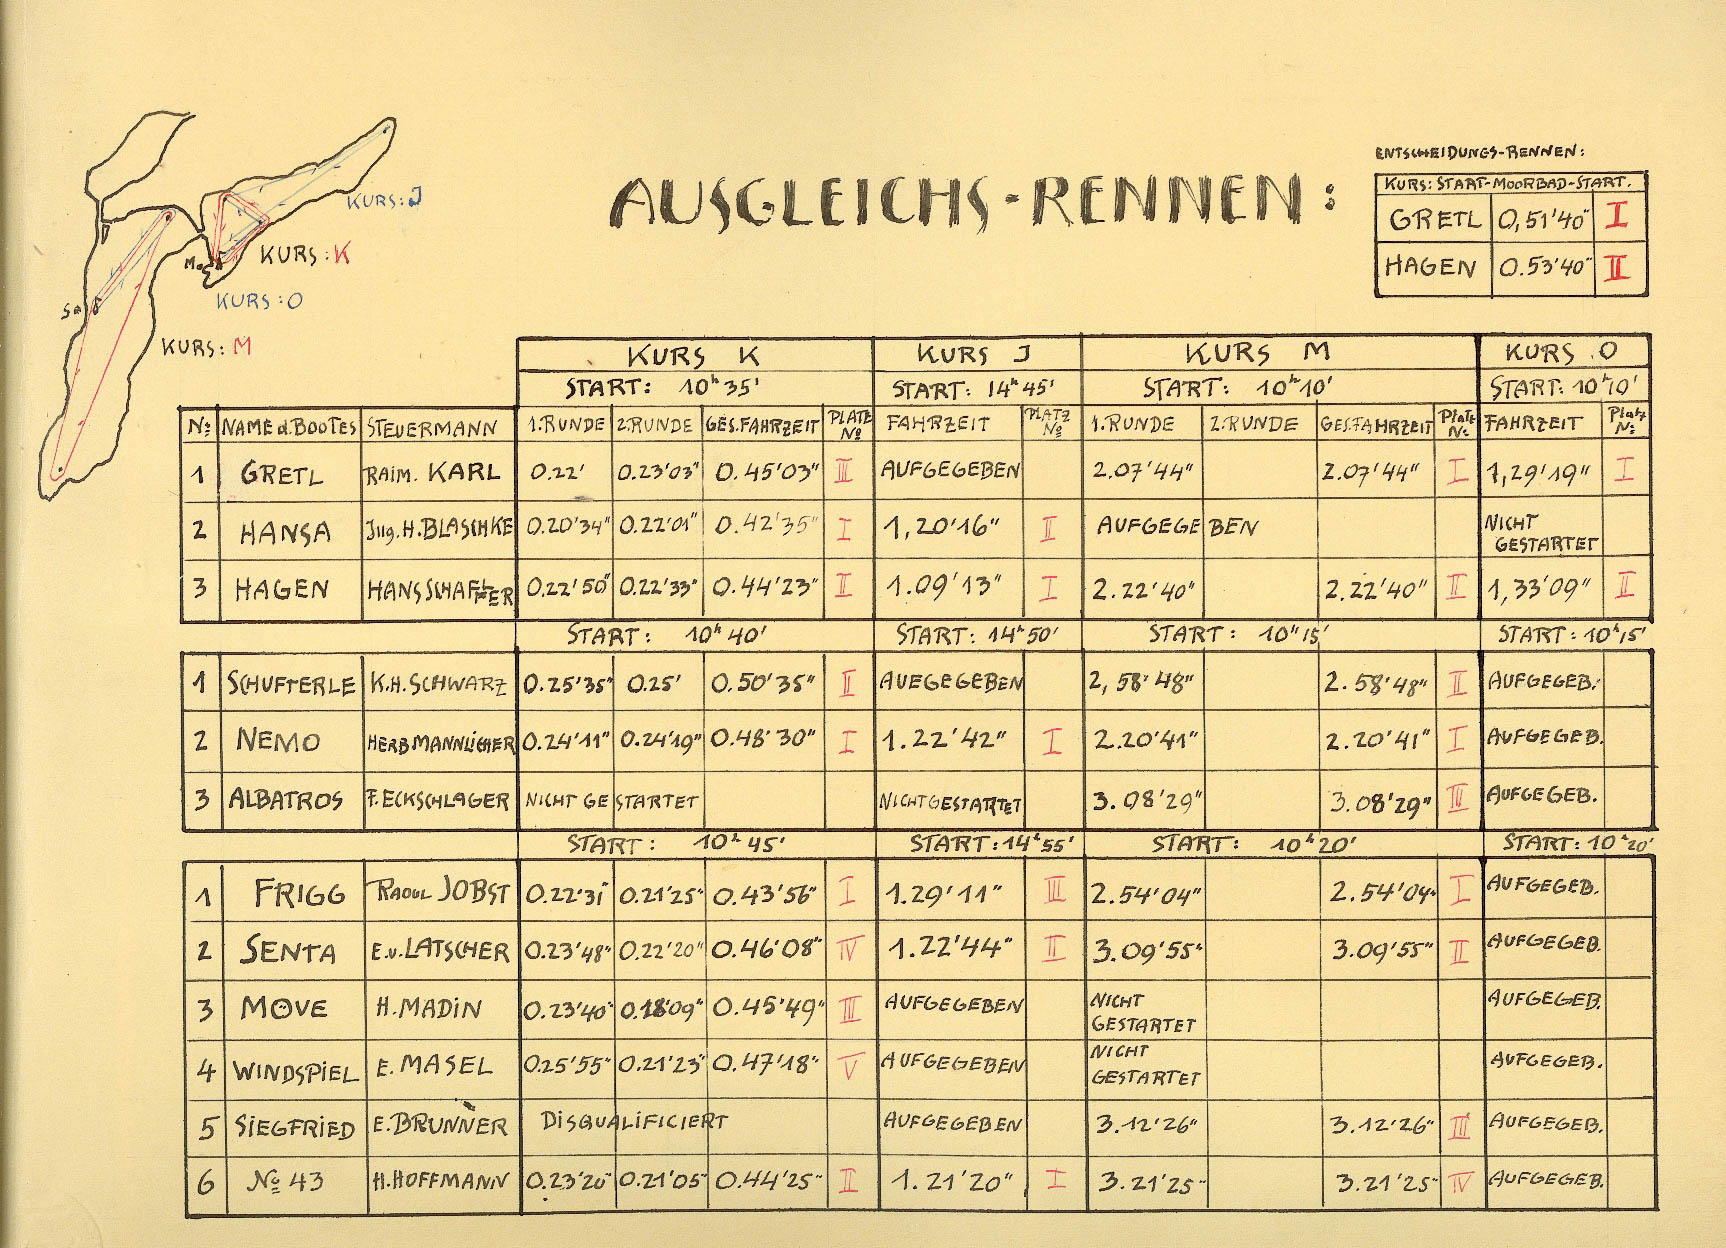 AUSGLEICHS-RENNEN:
ENTSCHEIDUNGS-RENNEN:
KURS: START-MOORBAD-START.
GRETL 0,51'40" I
HAGEN 0.53'40" II
KURS: J
KURS: K
M.
KURS: O
KURS: M
KURS K KURS J KURS M KURS O
START: 10h 35' START: 14h 45' START: 10h 10' START: 10h 10'
No NAME d. BOOTES STEUERMANN 1.RUNDE 2.RUNDE GES.FAHRZEIT PLATZ No FAHRZEIT PLATZ No 1.RUNDE 2.RUNDE GES.FAHRZEIT Platz No FAHRZEIT Platz No
1 GRETL RAIM. KARL 0.22' 0.23'03" 0.45'03" III AUFGEGEBEN 2.07'44" 2.07'44" I 1,29'19" I
2 HANSA Jng. H. BLASCHKE 0.20'34" 0.22'01" 0.42'35" I 1,20'16" II AUFGEGEBEN NICHT GESTARTET
3 HAGEN HANS SCHAFFLER 0.22'50" 0.22'33" 0.44'23" II 1.09'13" I 2.22'40" 2.22'40" II 1,33'09" II
START: 10h 40' START: 14h 50' START: 10h 15' START: 10h 15'
1 SCHUFTERLE K.H. SCHWARZ 0.25'35" 0.25' 0.50'35" II AUEGEGEBEN 2,58'48" 2.58'48" II AUFGEGEB.
2 NEMO HERB MANNLICHER 0.24'11" 0.24'19" 0.48'30" I 1.22'42" I 2.20'41" 2.20'41" I AUFGEGEB.
3 ALBATROS F. ECKSCHLAGER NICHT GESTARTET NICHT GESTARTET 3.08'29" 3.08'29" III AUFGEGEB.
START: 10h 45' START: 14h 55' START: 10h 20' START: 10h 20'
1 FRIGG RAOUL JOBST 0.22'31" 0.21'25" 0.43'56" I 1.29'11" III 2.54'04" 2.54'04" I AUFGEGEB.
2 SENTA E.v. LATSCHER 0.23'48" 0.22'20" 0.46'08" IV 1.22'44" II 3.09'55" 3.09'55" II AUFGEGEB.
3 MÖVE H. MADIN 0.23'40" 0.18'09" 0.45'49" III AUFGEGEBEN NICHT GESTARTET AUFGEGEB.
4 WINDSPIEL E. MASEL 0.25'55" 0.21'23" 0.47'18" V AUFGEGEBEN NICHT GESTARTET AUFGEGEB.
5 SIEGFRIED E. BRUNNER DISQUALIFICIERT AUFGEGEBEN 3.12'26" 3.12'26" III AUFGEGEB.
6 No 43 H. HOFFMANN 0.23'20" 0.21'05" 0.44'25" II 1.21'20" I 3.21'25" 3.21'25" IV AUFGEGEB.